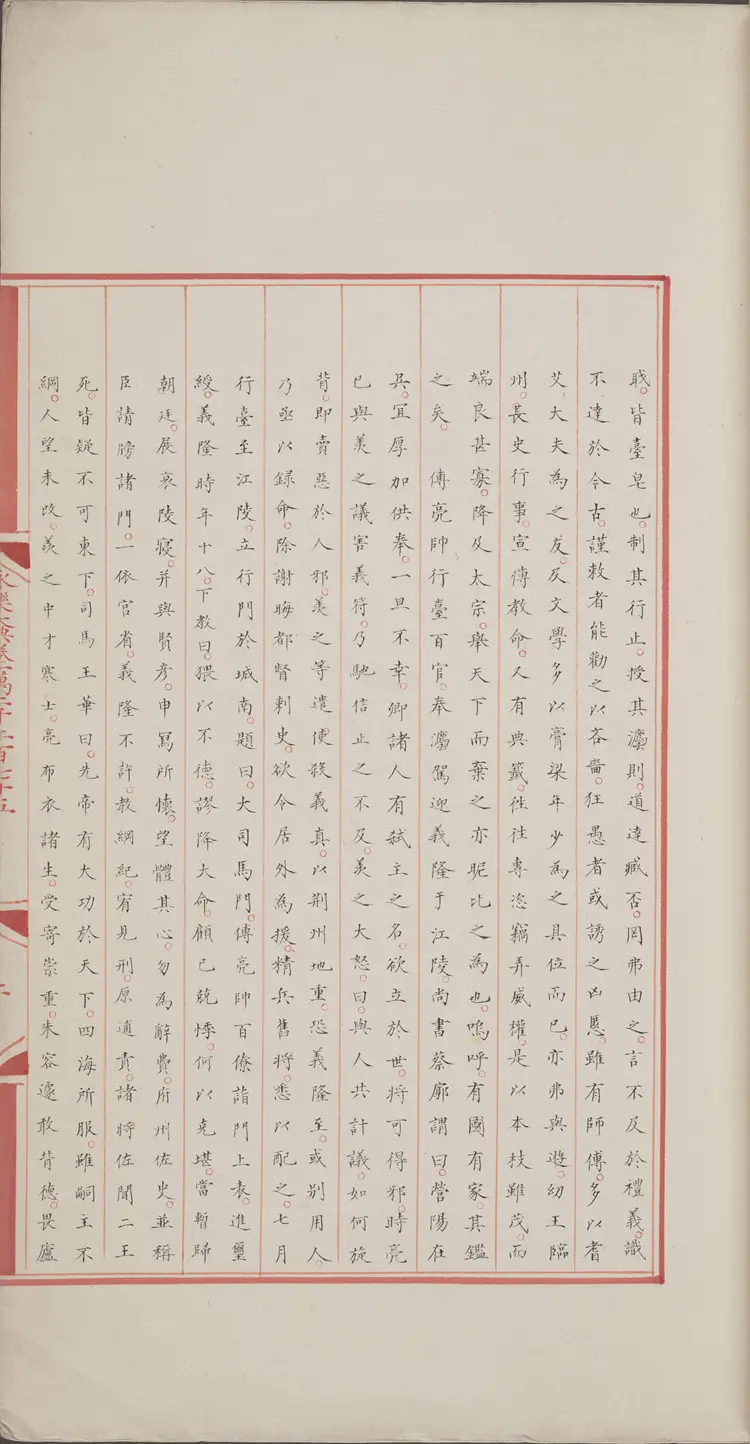 戝。皆臺皂也。制其行止。授其瀍則。道達臧否。罔弗由之。言不及於禮義。識
不達於今古。謹敕者能勸之以吝嗇。狂愚者或誘之凶慝。雖有師傅。多以耆
艾大夫為之。友及文學。多以膏梁年少為之。具位而已。亦弗與遊。幼王臨
州。長史行事。宣傳教命。又有典籖。往往專恣。竊弄威權。是以本枝雖茂。而
端良甚寡。降及太宗。舉天下而棄之。亦昵比之為也。嗚呼。有國有家。其鑑
之矣。 傅亮帥行臺百官。奉灋駕迎義隆于江陵。尚書蔡廓謂曰。營陽在
吳。宜厚加供奉。一旦不幸。卿諸人有弑主之名。欲立於世。將可得邪。時亮
已與羨之議害義符。乃馳信止之不及。羨之大怒。曰。與人共計議。如何旋
背。即賣惡於人邪。羨之等遣使殺義真。以荆州地重。恐義隆至。或别用人。
乃亟以録命。除謝晦都督刺史。欲令居外為援。精兵舊將。悉以配之。七月
行臺至江陵。立行門於城南。題曰。大司馬門。傅亮帥百僚詣門上表。進璽
綬。義隆時年十八。下教曰。猥以不德。謬降大命。顧已兢悸。何以克堪。當暫歸
朝廷。展哀陵寢。并與賢彦。申冩所懷。望體其心。勿為辭費。府州佐史。並稱
臣請牓諸門。一依宫省。義隆不許。教綱紀。宥見刑。原逋責。諸將佐聞二王
死。皆疑不可東下。司馬王華曰。先帝有大功於天下。四海所服。雖嗣主不
綱。人望未改。羨之中才寒士。亮布衣諸生。受寄崇重。未容遽敢背德。畏廬